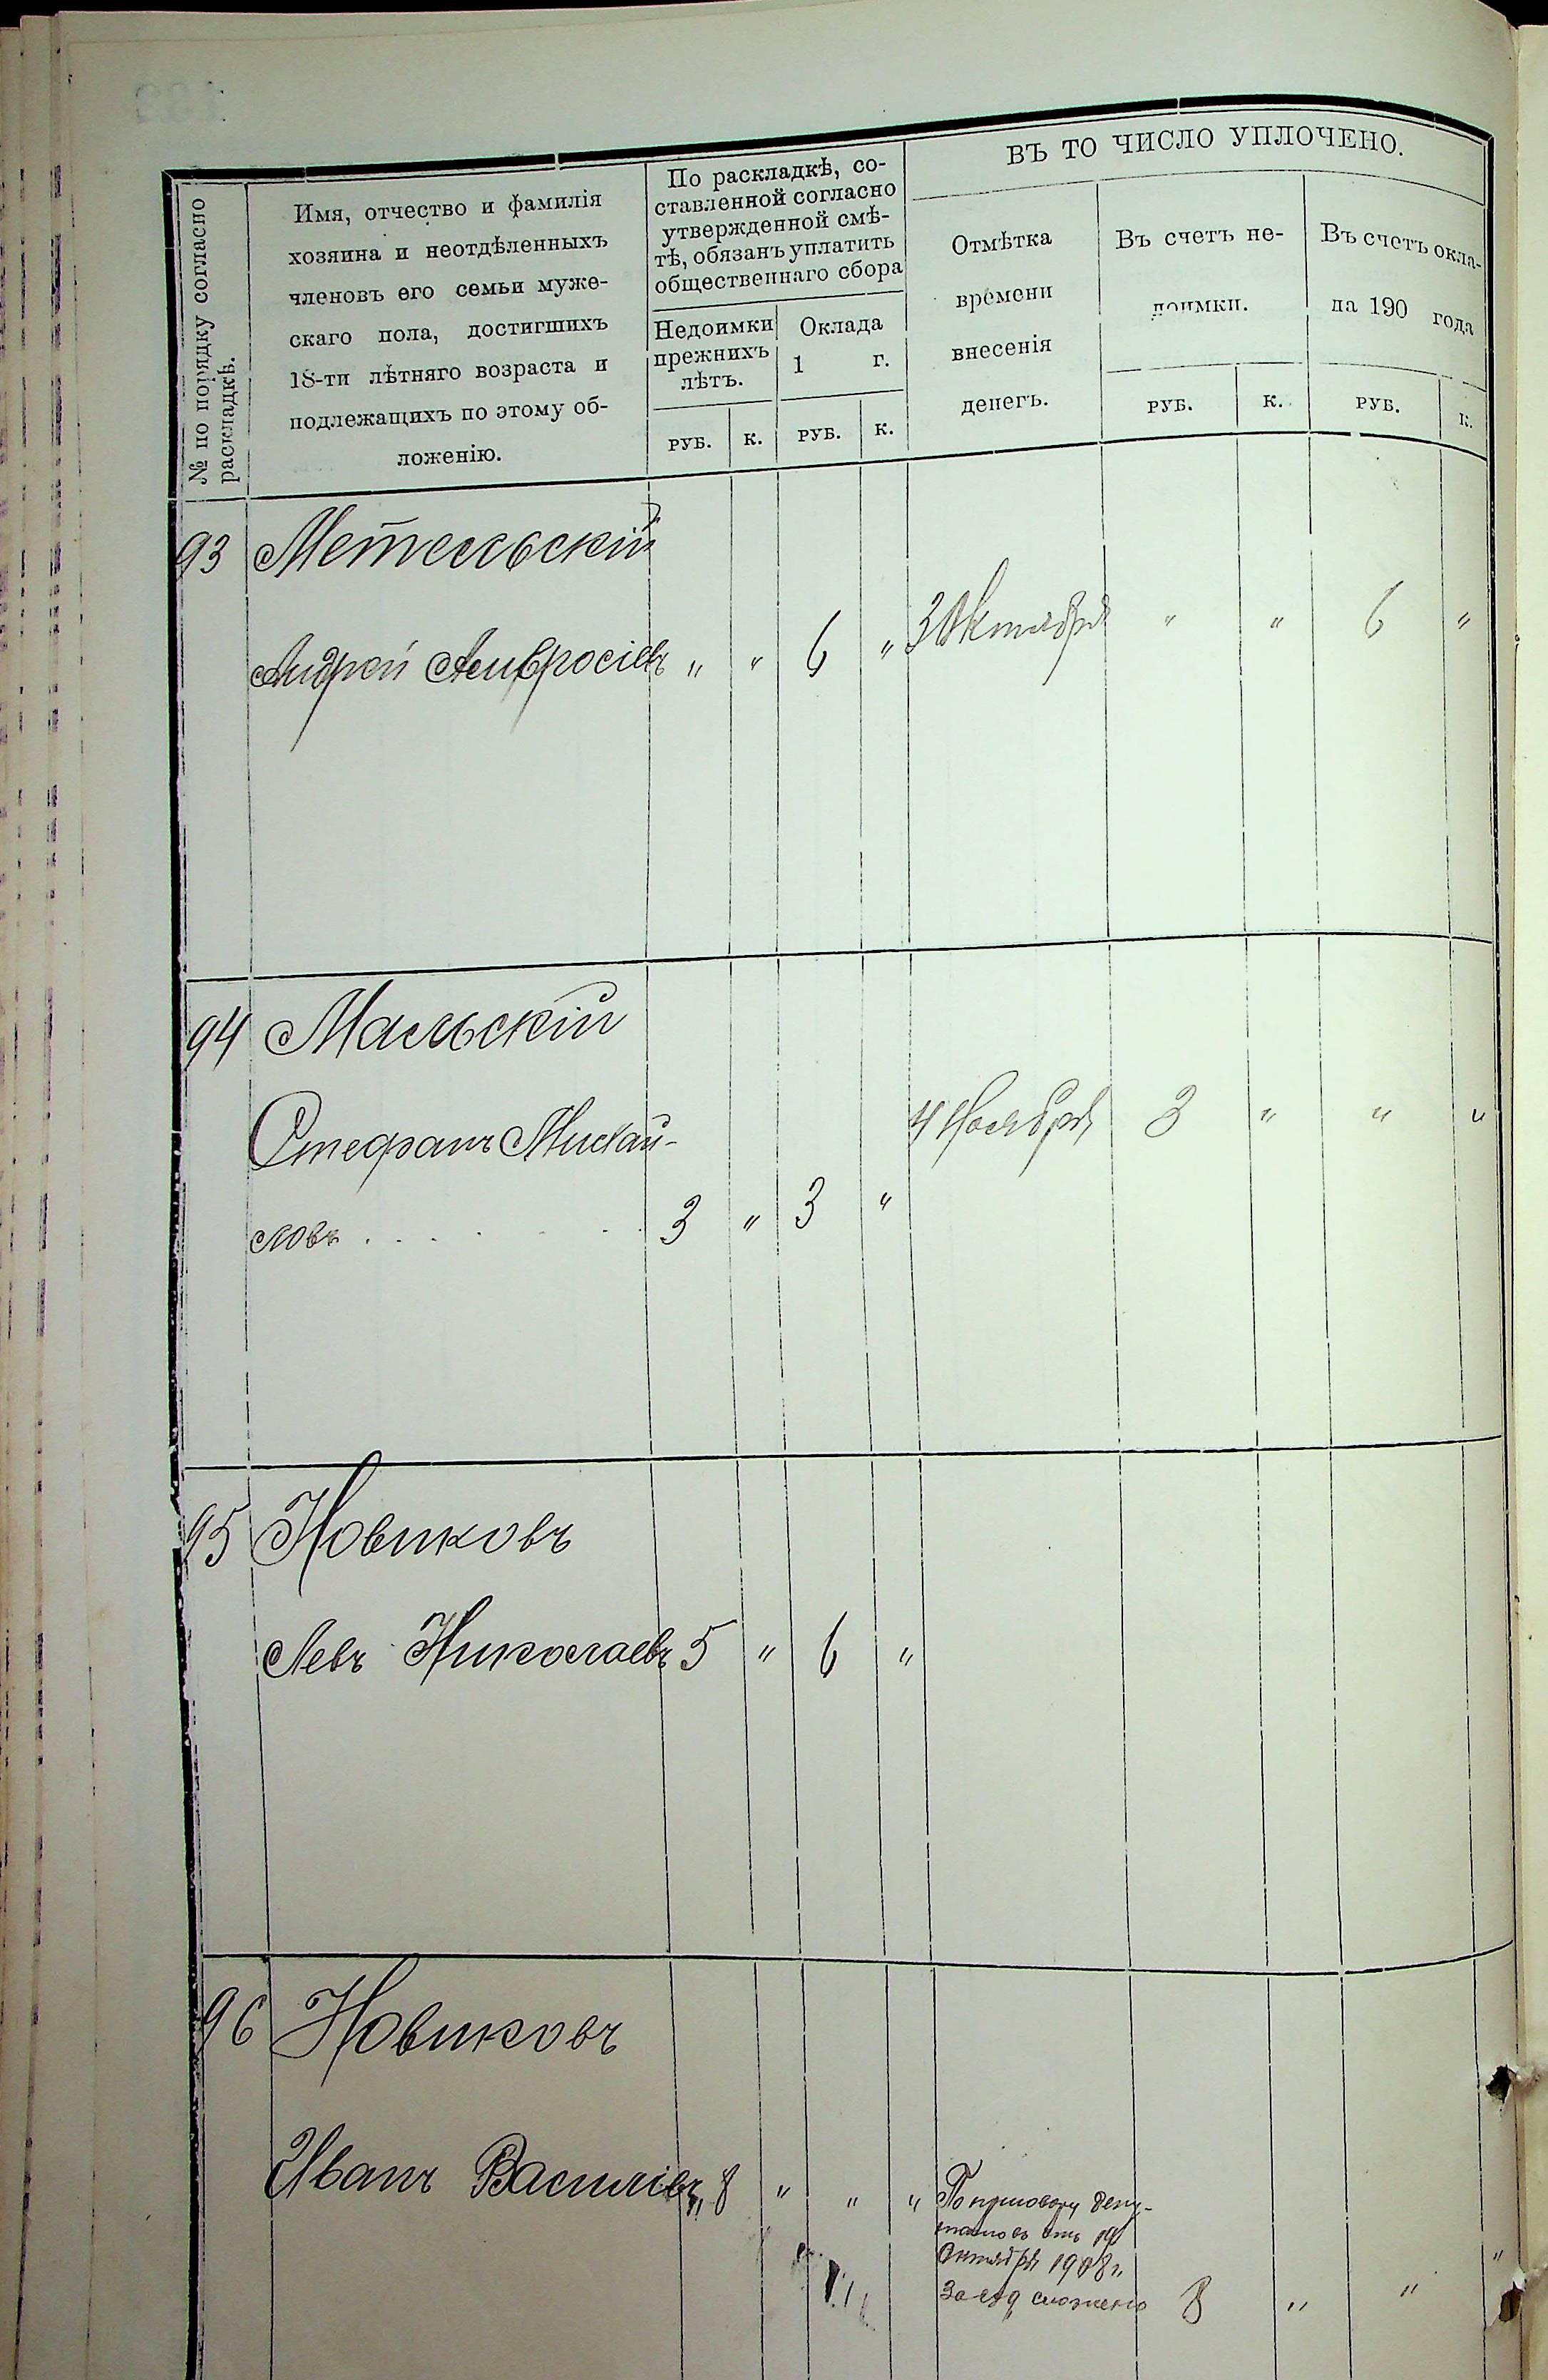 № по порядку согласно
раскладкѣ.
Имя, отчество и фамилія
хозяина и неотдѣленныхъ
членовъ его семьи муже-
скаго пола, достигшихъ
18-ти лѣтняго возраста и
подлежащихъ по этому об-
ложенію.
По раскладкѣ, со-
ставленной согласно
утвержденной смѣ-
тѣ, обязанъ уплатить
общественнаго сбора
Недоимки
прежнихъ
лѣтъ.
Оклада
1 г.
РУБ. К. РУБ. К.
ВЪ ТО ЧИСЛО УПЛОЧЕНО.
Отмѣтка
времени
внесенія
денегъ.
Въ счетъ не-
доимки.
Въ счетъ окла-
да 190 года
РУБ. К. РУБ. К.
93 Метельскій
Андрей Амвросіевъ " " 6 " 3 Октября " " 6 "
94 Мальскій
Стефанъ Михай- 4 Ноября 3 " " "
ловъ . . . . . . . 3 " 3 "
95 Новиковъ
Левъ Николаевъ 5 " 6 "
96 Новиковъ
Иванъ Василіевъ 8 " " " По приговору депу-
татовъ отъ 19
Октября 1908 г.
сложено 8 " " "